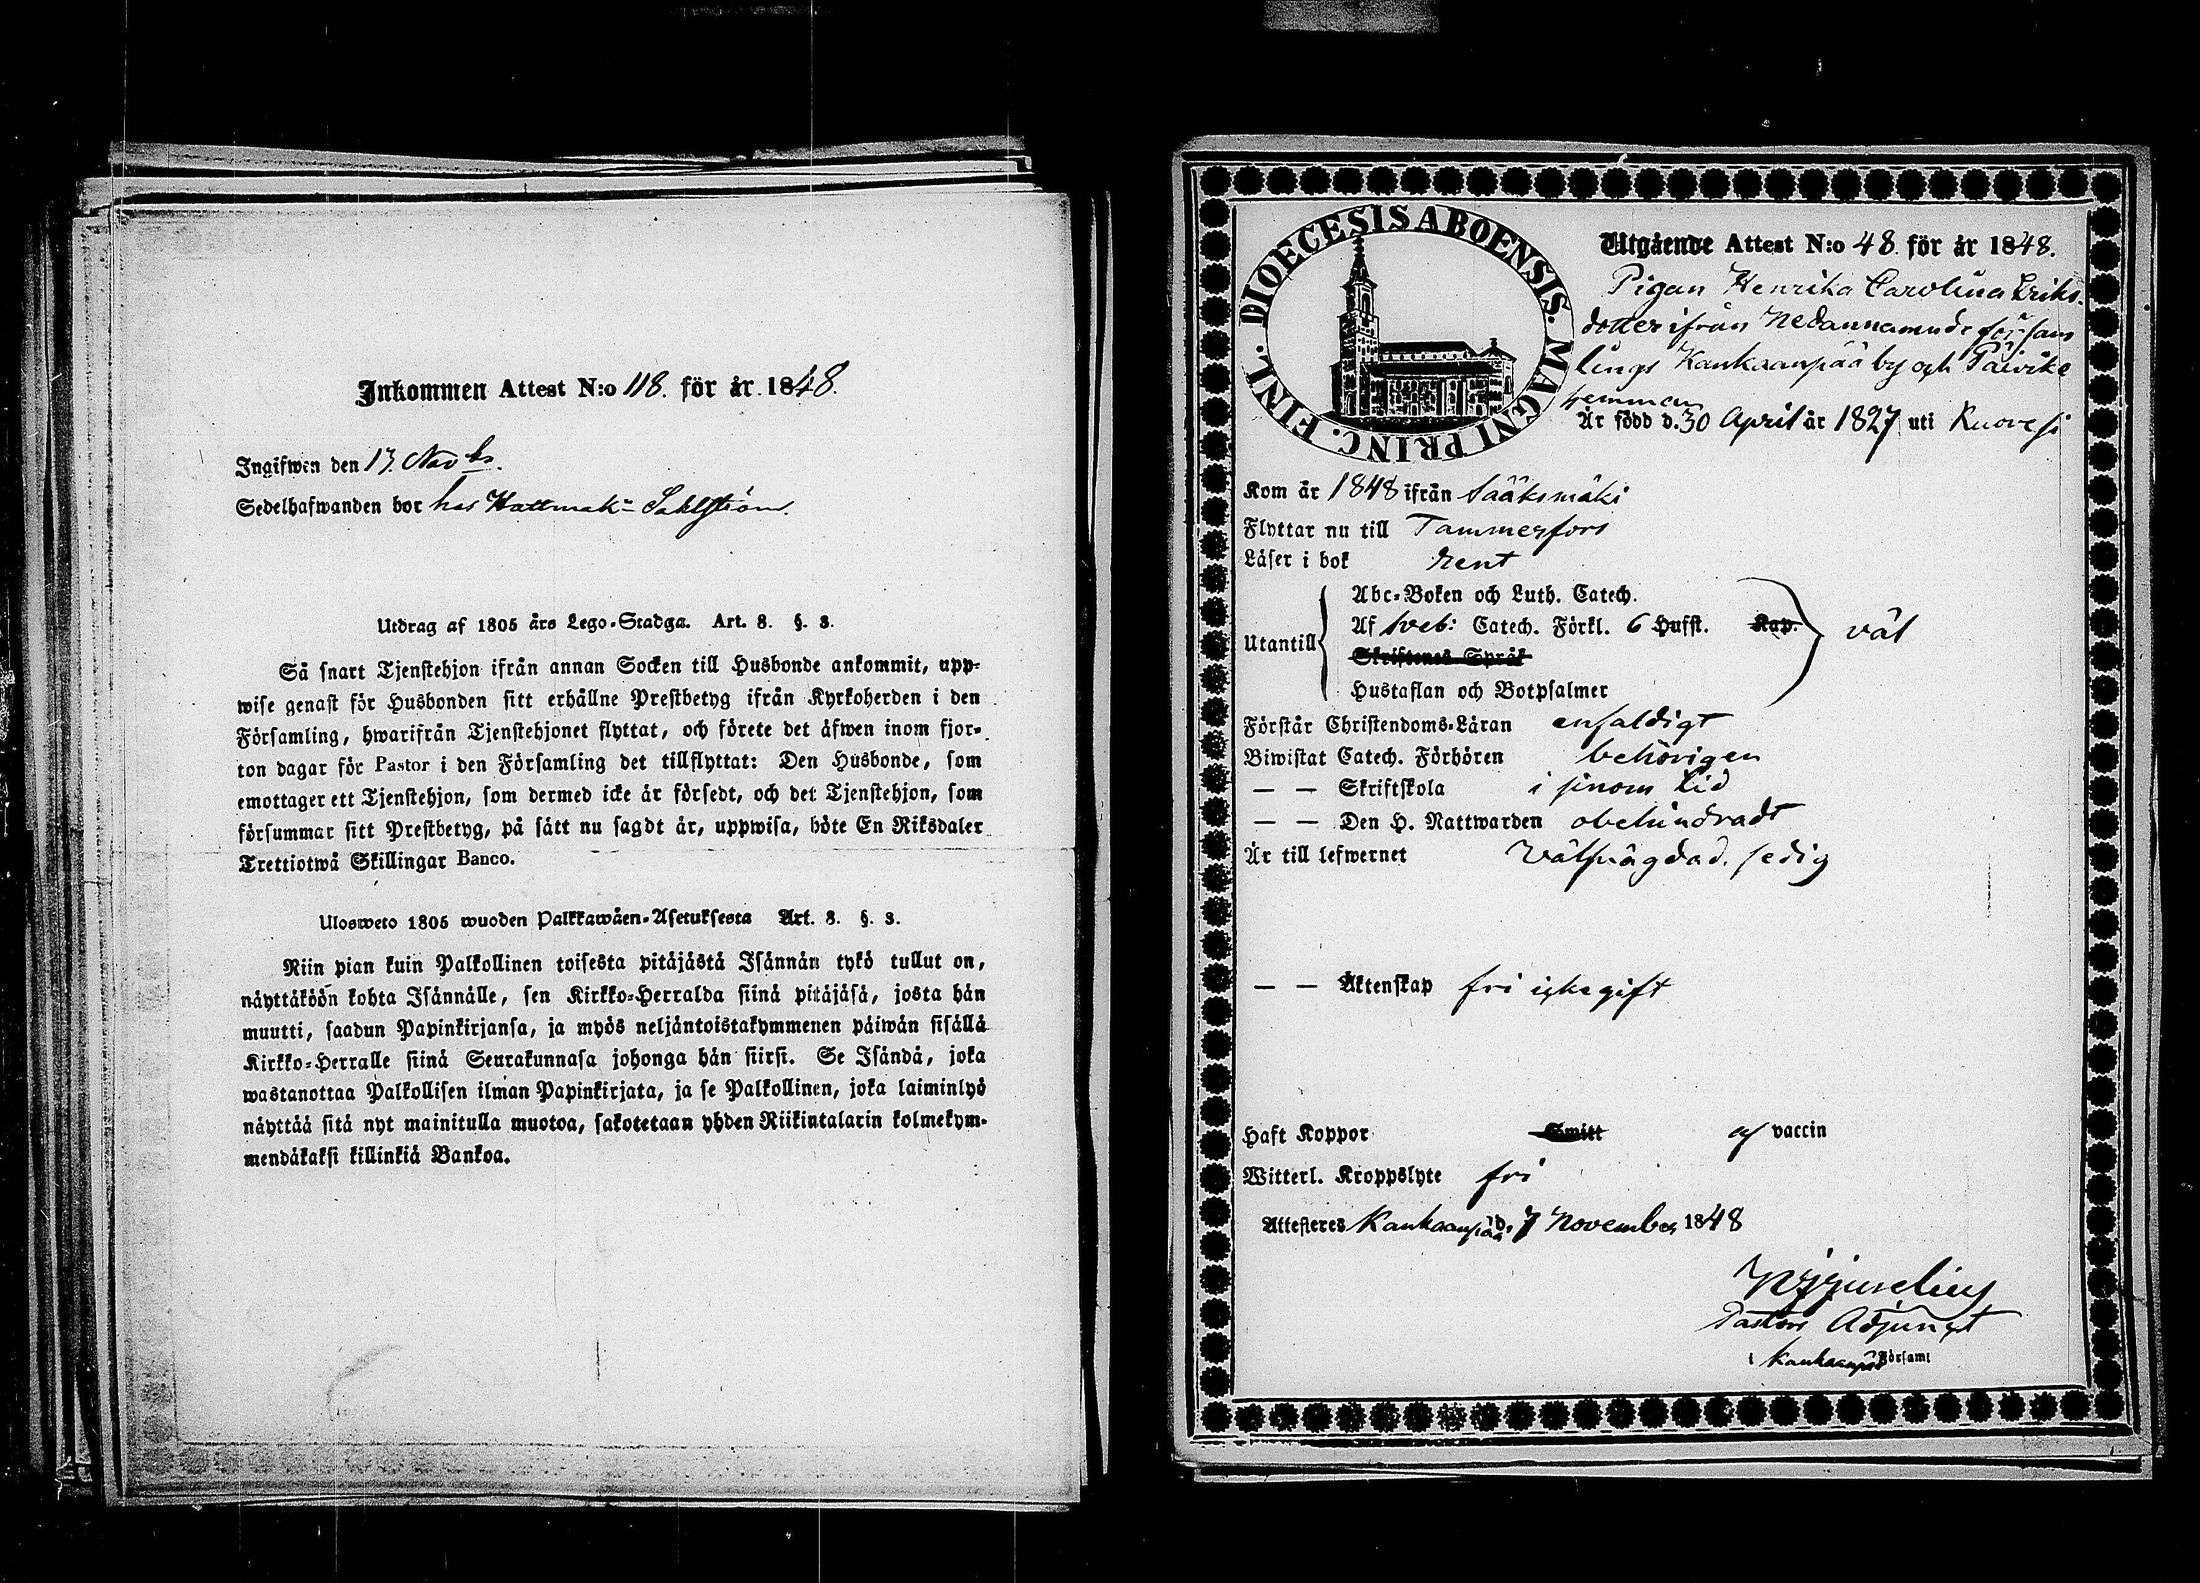 Inkommen Attest N:o 118. för år 1848.
Ingifwen den 13 Novbr.
Sedelhafwanden bor hos Hattmak. Sahlström.
Utdrag af 1805 års Lego-Stadga. Art. 8. §. 3.
Så snart Tjenstehjon ifrån annan Socken till Husbonde ankommit, upp-
wise genast för Husbonden sitt erhållne Prestbetyg ifrån Kyrkoherden i den
Församling, hwarifrån Tjenstehjonet flyttat, och förete det äfwen inom fjor-
ton dagar för Pastor i den Församling det tillflyttat: Den Husbonde, som
emottager ett Tjenstehjon, som dermed icke är försedt, och det Tjenstehjon, som
försummar sitt Prestbetyg, på sätt nu sagdt är, uppwisa, böte En Riksdaler
Trettiotwå Skillingar Banco.
Ulosweto 1805 wuoden Palkkawäen-Asetuksesta Art. 8. §. 3.
Niin pian kuin Palkollinen toisesta pitäjästä Isännän tykö tullut on,
näyttäköön kohta Isännälle, sen Kirkko-Herralda siinä pitäjäsä, josta hän
muutti, saadun Papinkirjansa, ja myös neljäntoistakymmenen päiwän sisällä
Kirkko-Herralle siinä Seurakunnasa johonga hän siirsi. Se Isändä, joka
wastanottaa Palkollisen ilman Papinkirjata, ja se Palkollinen, joka laiminlyö
näyttää sitä nyt mainitulla muotoa, sakotetaan yhden Riikintalarin kolmekym-
mendäkaksi killinkiä Bankoa.
DIOECESIS ABOENSIS. MAGNI PRINC. FINL.
Utgående Attest N:o 48 för år 1848.
Pigan Henrika Carolina Eriks-
dotter ifrån Nedannämnde för sam
lings Kankaanpää by och Päivike
hemman
Är född d. 30 April år 1827 uti Ruovesi
Kom år 1848 ifrån Sääksmäki
Flyttar nu till Tammerfors
Läser i bok rent
Utantill
Abc-Boken och Luth. Catech.
Af Sveb: Catech. Förkl. 6 Hufst. Kap. väl
Skriftenes Språk
Hustaflan och Botpsalmer
Förstår Christendoms-Läran enfaldigt
Biwistat Catech. Förhören behörigen
— — Skriftskola i sinom tid
— — Den H. Nattwarden obehindradt
Är till lefwernet välfrägdad. sedig
— — Äktenskap fri icke gift
Haft Koppor Smitt af vaccin
Witterl. Kroppslyte fri
Attesteres Kankaanpää d. 7 November 1848
Pastors Adjunct
i Kankaanpää Församl